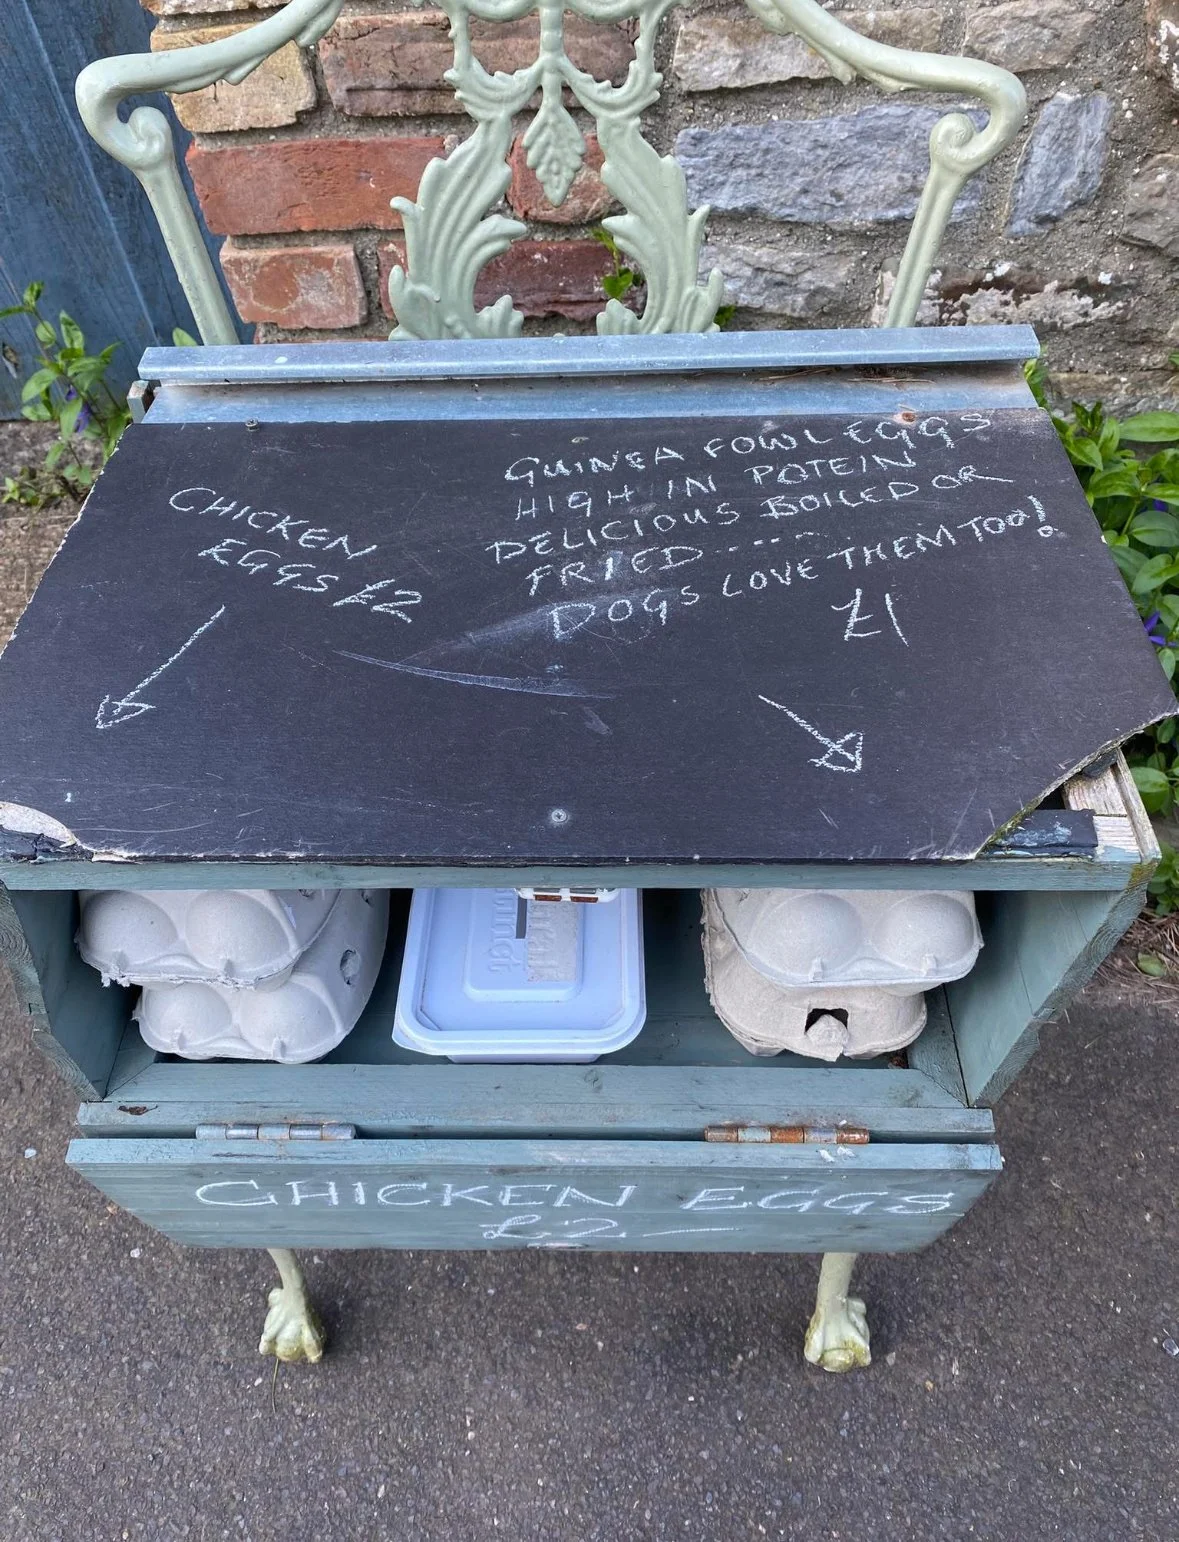 CHICKEN
EGGS £2
GUINEA FOWL EGGS
HIGH IN POTEIN
DELICIOUS BOILED OR
FRIED......
DOGS LOVE THEM TOO!
£1
CHICKEN EGGS
£2